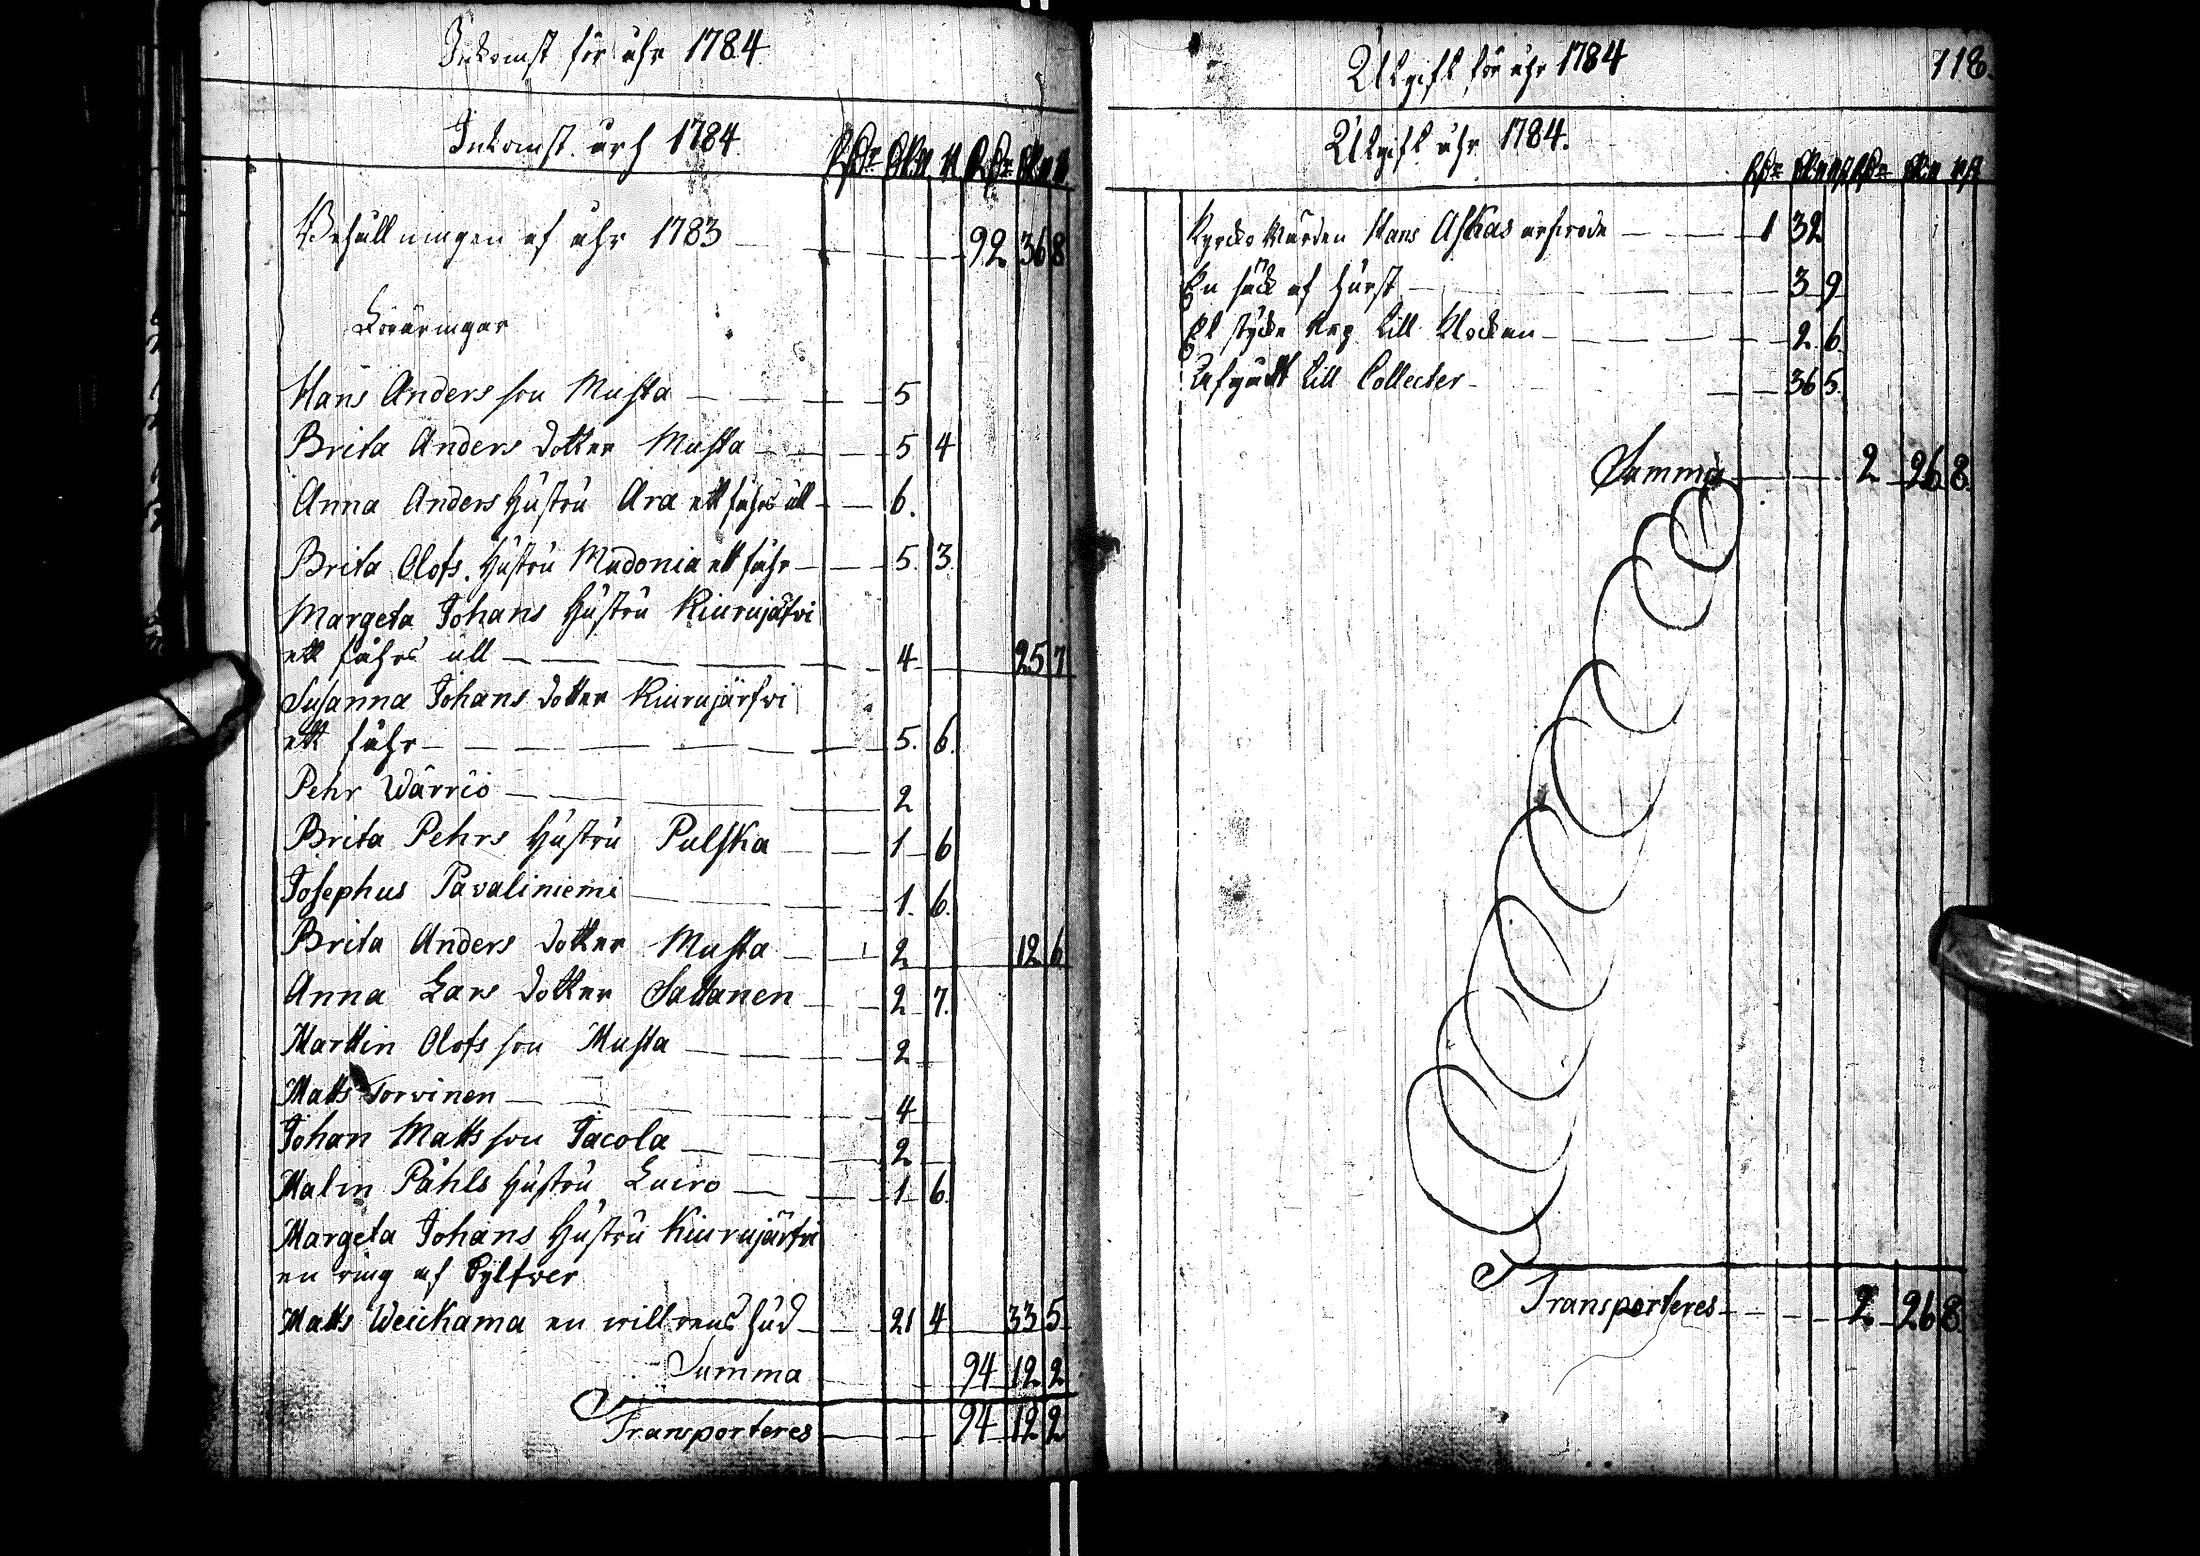 Inkomst för åhr 1784
Inkomst åhr 1784. RDr Sk rst RDr Sk rst
Behållningen af åhr 1783 92 36 8
Föräringar
Hans Anders son Musta 5
Brita Anders dotter Musta 5 4
Anna Anders hustru Ara ett fåhrs ull 6.
Brita Olofs hustru Madonia ett fåhr 5. 3.
Margeta Johans hustru Kiurujärfvi
ett fåhrs ull 4 25 7
Susanna Johans dotter Kiurujärfvi
ett fåhr 5. 6.
Pehr Wärriö 2
Brita Pehrs hustru Pulska 1 6
Josephus Pavaliniemi 1. 6.
Brita Anders dotter Musta 2 12 6
Anna Lars dotter Sattanen 2 7.
Mattin Olofs son Musta 2
Matts Torvinen 4
Johan Matts son Jacola 2
Malin Påhls hustru Luiro 1 6.
Margeta Johans hustru Kiurujärfvi
en ring af Sylfver
Matts Weickama en vill rens hud 21 4 33 5
Summa 94 12 2
Transporteres 94 12 2
Utgift för åhr 1784 118.
Utgift åhr 1784.
Kyrcko Wärden Hans Askas arfvode 1 32
En säck af hurst 3 9
Et stycke rep till Klockan 2 6.
Utgådt till Collecter 36 5.
Summa 2 26 8.
Transporteres 2 26 8.